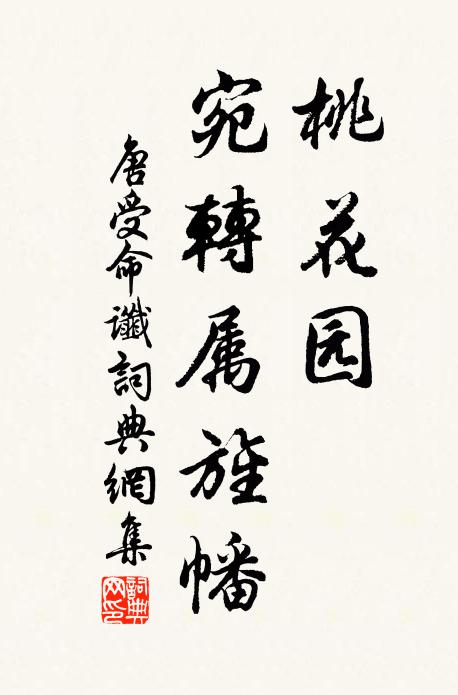 桃花园
宛轉属旌幡
唐受命谶詞典網集
詞典
网印